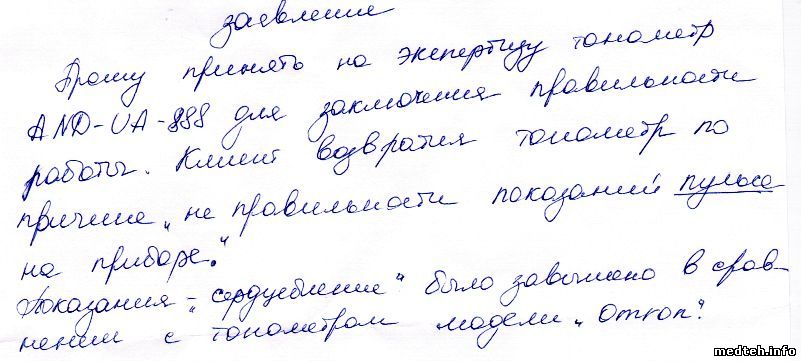 заявление
Прошу принять на экспертизу тонометр
AND-UA-888 для заключения правильности
работы. Клиент возвратил тонометр по
причине „не правильности показаний пульса
на приборе."
Показания - „сердцебиение" было завышено в срав-
нении с тонометром модели „Omron".
medteh.info